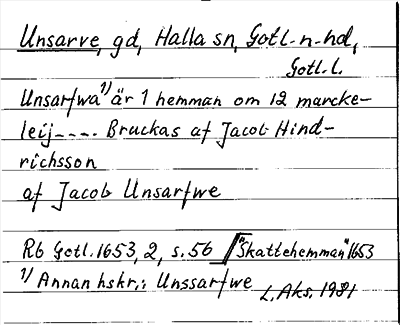 Unsarve, gd, Halla sn, Gotl. n. hd,
Gotl. l.
Unsarfwa 1) är 1 hemman om 12 marcke-
leij---- Bruckas af Jacob Hind-
richsson
af Jacob Unsarfwe
Rb Gotl. 1653, 2, s. 56 "Skattehemman" 1653
1) Annan hskr.: Unssarfwe
L. Aks. 1981